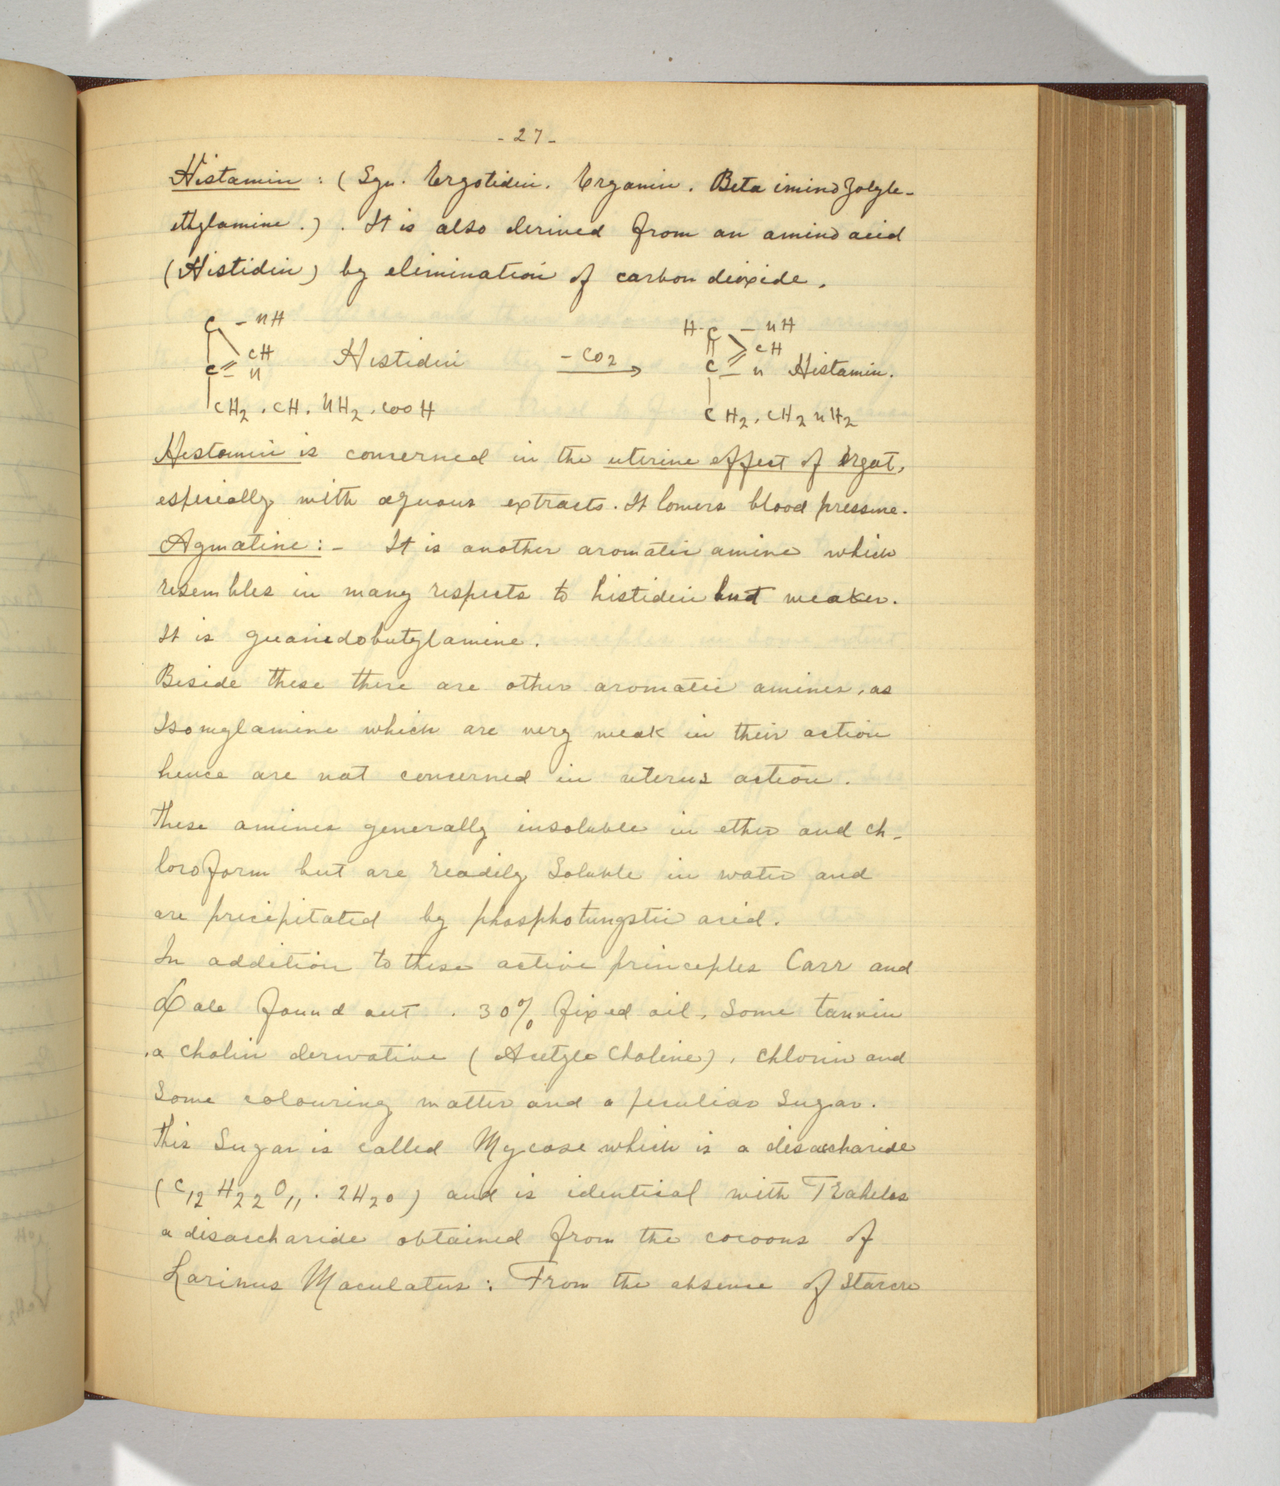 - 27 -
Histamin : ( Syn. Ergotidin. Ergamin. Beta iminozolyle-
ethylamine . ) . It is also derived from an amino acid
(Histidin) by elimination of carbon dioxide .
C - NH
CH
C = N Histidin
CH2 . CH . NH2 . COOH
- CO2
H - C - NH
CH
C - N Histamin.
CH2 . CH2 NH2
Histamin is concerned in the uterine effect of Ergot,
especially with aquous extracts. It lowers blood pressure.
Agmatine : - It is another aromatic amine which
resembles in many respects to histidin but weaker.
It is guanidobutylamine .
Beside these there are other aromatic amines, as
Isomylamine which are very weak in their action
hence are not concerned in uterus action .
These amines generally insoluble in ether and ch-
loroform but are readily Soluble in water and
are precipitated by phosphotungstic acid .
In addition to these active principles Carr and
Dale found out . 30% fixed oil, Some tannin
a cholin derivative ( Acetylo Choline ) , chlorin and
Some colouring matter and a peculiar Sugar .
This Sugar is called Mycose which is a disaccharide
( C12 H22 O11 . 2H2O ) and is identical with Trahelos
a disaccharide obtained from the cocoons of
Larinus Maculatus : From the absense of